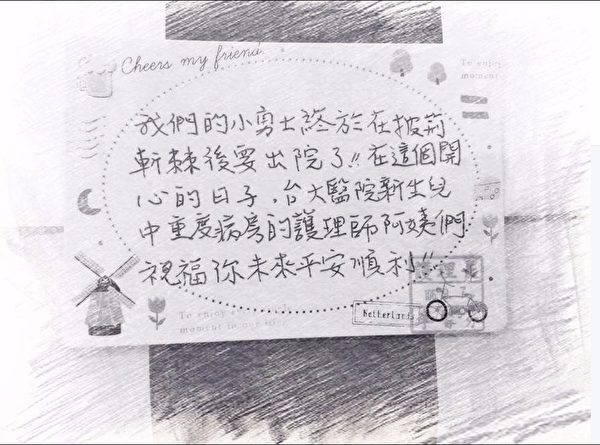 Cheers my friend
To enjoy
moment
我們的小勇士終於在披荊
斬棘後要出院了!!在這個開
心的日子,台大醫院新生兒
中重度病房的護理師阿姨們
祝福你未來平安順利!!
To enjoy
moment in our
Netherlands